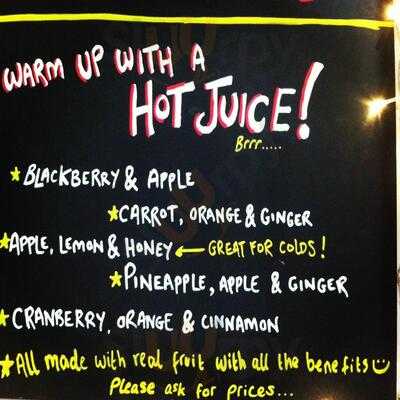 WARM UP WITH A
HOT JUICE!
Brrr.....
BLACKBERRY & APPLE
CARROT, ORANGE & GINGER
APPLE, LEMON & HONEY ← GREAT FOR COLDS!
PINEAPPLE, APPLE & GINGER
CRANBERRY, ORANGE & CINNAMON
All made with real fruit with all the benefits
Please ask for prices...